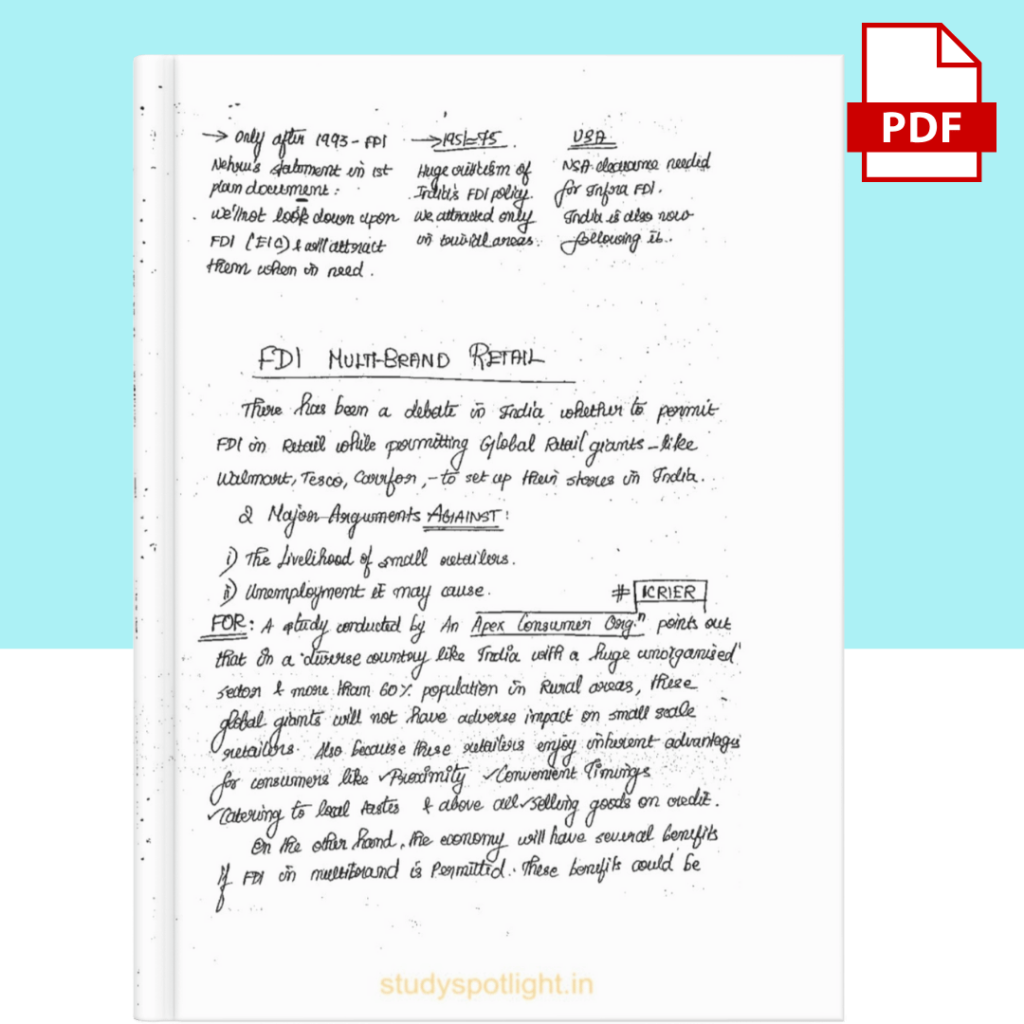 → only after 1993 - FDI
Nehru's statement in 1st
plan document:
we'll not look down upon
FDI (EIC) & will attract
them when in need.
→ 1951-75
Huge criticism of
India's FDI policy.
We attracted only
in trivial areas.
USA
NSA clearance needed
for Infra FDI.
India is also now
following it.
FDI MULTI-BRAND RETAIL
There has been a debate in India whether to permit
FDI in Retail while permitting Global Retail giants - like
Walmart, Tesco, Carrfor, - to set up their stores in India.
2 Major Arguments AGAINST:
i) The Livelihood of small retailers.
ii) Unemployment it may cause.
# ICRIER
FOR: A study conducted by An Apex Consumer Orgⁿ points out
that in a diverse country like India with a huge unorganised
sector & more than 60% population in Rural areas, these
global giants will not have adverse impact on small scale
retailers. Also because these retailers enjoy inherent advantages
for consumers like ✓Proximity ✓Convenient Timings
✓Catering to local tastes & above all ✓selling goods on credit.
On the other hand, the economy will have several benefits
If FDI in multibrand is Permitted. These benefits could be
studyspotlight.in
PDF